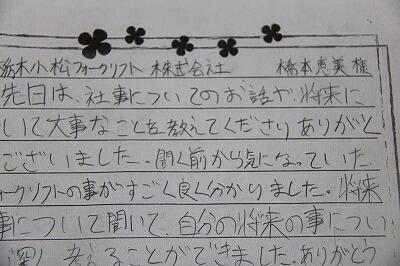 栃木小松フォークリフト 株式会社 橋本恵美 様
先日は、仕事についてのお話や、将来に
いて大事なことを教えてくださりありがと
ございました。聞く前から気になっていた
ォークリフトの事がすごく良く分かりました。将来
事について聞いて、自分の将来の事につい
考えることができました。ありがとう